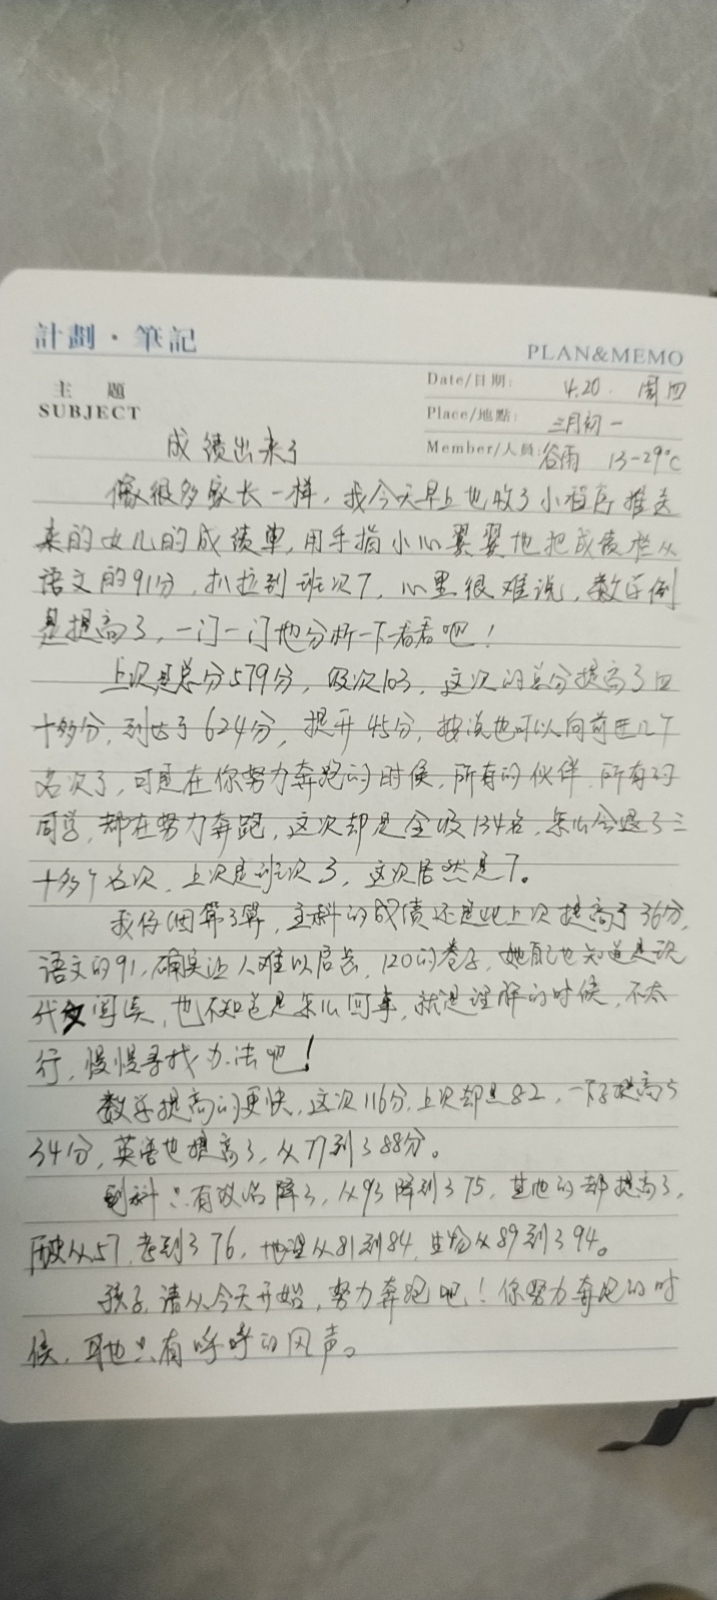 計劃·筆記
PLAN&MEMO
主 題
SUBJECT
Date/日期: 4.20. 周四
Place/地點: 三月初一
Member/人員: 谷雨 13-29°C
成绩出来了
像很多家长一样，我今天早上也收了小程序推送
来的女儿的成绩单，用手指小心翼翼地把成绩栏从
语文的91分，扒拉到班次7，心里很难说，数学倒
是提高了，一门一门地分析一下看看吧！
上次是总分579分，级次103，这次的总分提高了四
十多分，到达了624分，提升45分，按说也可以向前进几个
名次了，可是在你努力奔跑的时候，所有的伙伴，所有的
同学，都在努力奔跑，这次却是全级134名，怎么会退了三
十多个名次，上次是班次3，这次居然是7。
我仔细算了算，主科的成绩还是比上次提高了36分，
语文的91，确实让人难以启齿，120的卷子，她自己也知道是现
代文阅读，也不知道是怎么回事，就是理解的时候，不太
行，慢慢寻找办法吧！
数学提高的更快，这次116分，上次却是82，一下子提高了
34分，英语也提高了，从77到了88分。
副科只有政治降了，从93降到了75，其他的都提高了，
历史从57，考到了76，地理从81到84，生物从89到了94。
孩子，请从今天开始，努力奔跑吧！你努力奔跑的时
候，耳边只有呼呼的风声。